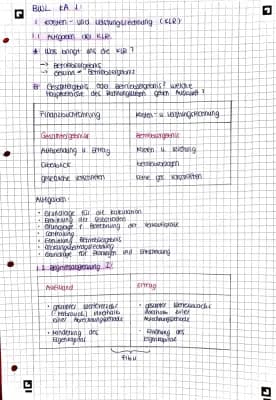 BWL KA 1:
1 Kosten- und Leistungsrechnung (KLR)
1.1 Aufgaben der KLR
* Was bringt uns die KLR?
→ Betriebsergebnis
→ Gewinn ≠ Betriebsergebnis
Geschäftsergebnis oder Betriebsergebnis? Welche
des Rechnungswesen geben Auskunft?
Finanzbuchführung Kosten- u Leistungsrechnung
Geschäftsergebnis Betriebsergebnis
Aufwendung u. Ertrag Kosten u. Leistung
Überblick
gesetzliche Vorschriften keine ges. Vorschriften
Aufgaben:
· Grundlage für die Kalkulation
· Ermittlung der Selbstkosten
· Grundlage f. Berechnung der
· Controlling
· Ermittlung Betriebsergebnis
·
· Grundlage für Planungen und Entscheidung
1.2 Begriffsabgrenzung
Aufwand Ertrag
· gesamter Werteverzehr · gesamter Wertezuwachs
(Verbrauch) innerhalb innerhalb einer
einer Abrechnungsperiode Abrechnungsperiode
· Minderung des · Erhöhung des
Eigenkapital Eigenkapitals
Fibu